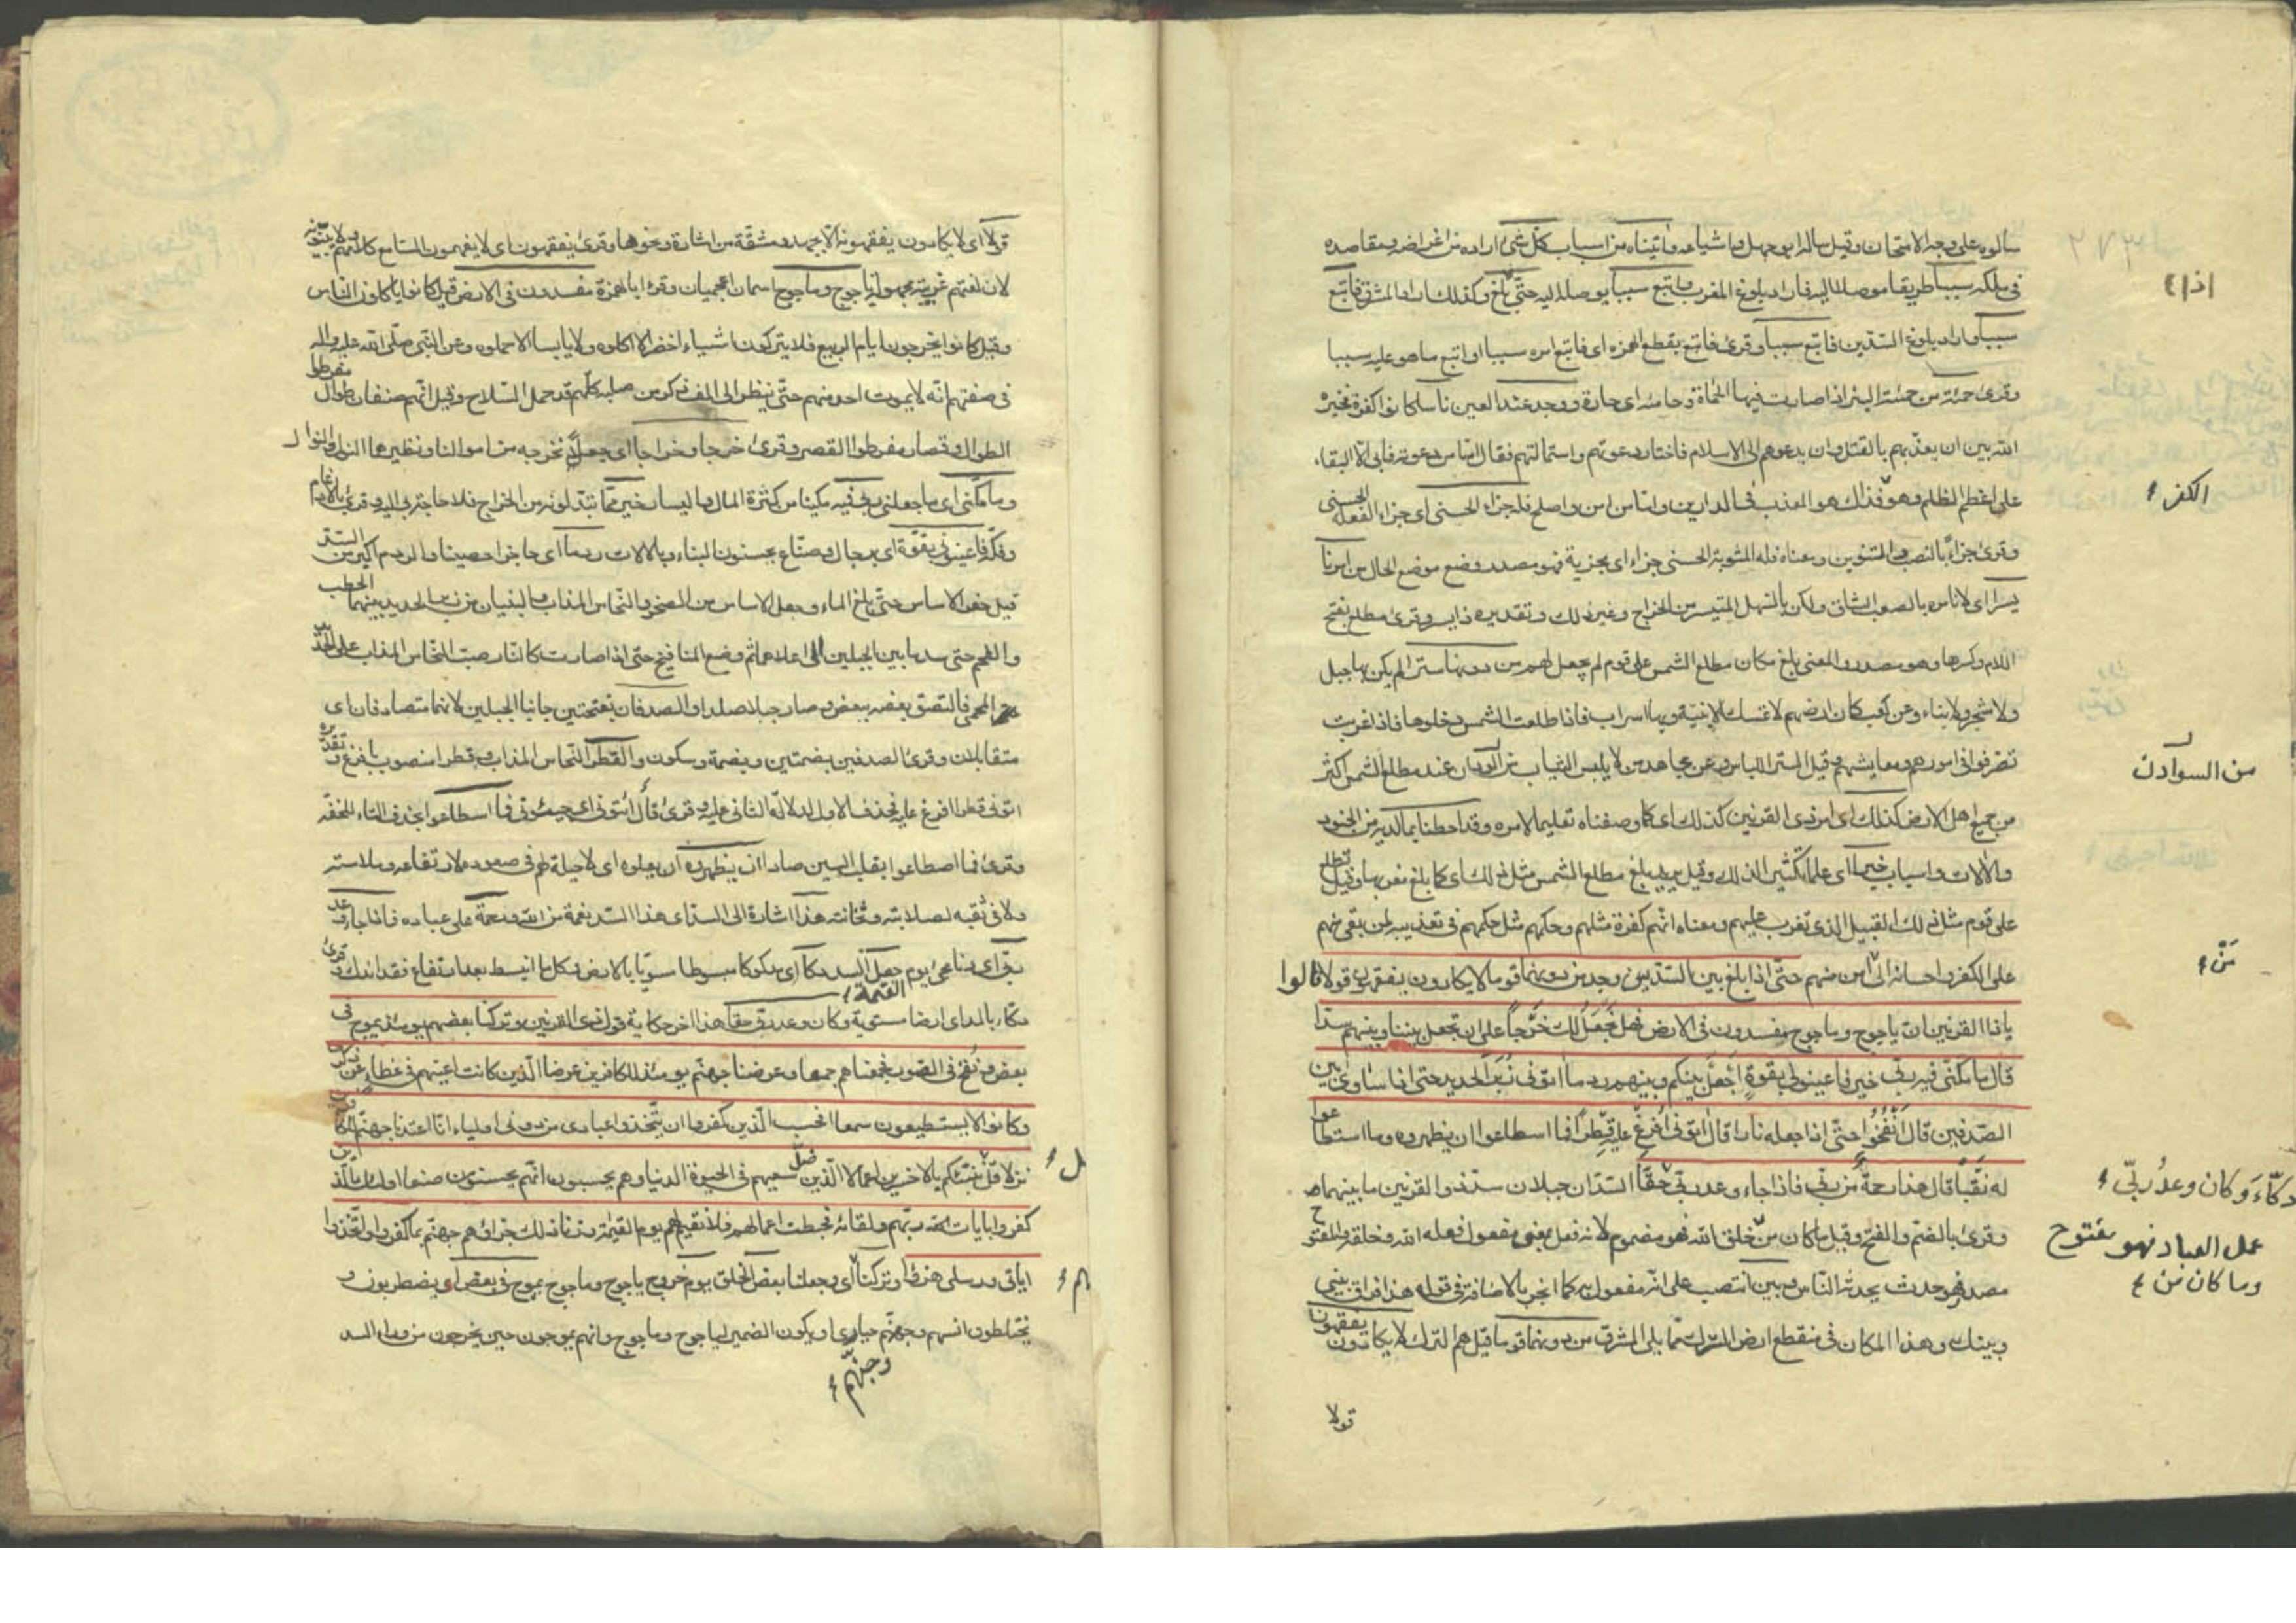 سألوه على وجه الامتحان وقيل سأله ابو جهل واشياعه واتيناه من اسباب كل شئ اراده من اغراضه ومقاصده
فى ملكه سببا طريقا موصلا اليه فاراد بلوغ المغرب فاتبع سببا يوصله اليه حتى بلغ وكذلك اراد المشرق فاتبع
اذا
سببا واراد بلوغ السدين فاتبع سببا وقرئ فاتبع بقطع الهمزه اى فاتبع امره سببا او اتبع ما هو عليه سببا
وقرئ حمئة من حمئت البئر اذا صارت فيها الحماة وحامية اى حارة ووجد عند العين ناسا كانوا كفرة فخيره
الله بين ان يعذبهم بالقتل وان يدعوهم الى الاسلام فاختار دعوتهم واستمالتهم فقال اما من دعوته فابى الا البقاء
على اعظم الظلم وهو فذلك هو المعذب فى الدارين واما من امن واصلح فله جزاء الحسنى اى جزاء الفعلة الحسنى
الكفر
وقرئ جزاء بالنصب والتنوين ومعناه فله المثوبة الحسنى جزاء اى مجزية فهو مصدر وضع موضع الحال من امرنا
يسرا اى لا نامره بالصعب الشاق ولكن بالسهل المتيسر من الخراج وغير ذلك وتقديره ذا يسر وقرئ مطلع بفتح
اللام وكسرها وهو مصدر والمعنى بلغ مكان مطلع الشمس على قوم لم يجعل لهم من دونها سترا لم يكن بها جبل
ولا شجر ولا بناء وعن كعب كان ارضهم لا تمسك الابنية وبها اسراب فاذا طلعت الشمس دخلوها فاذا غربت
تصرفوا فى امورهم ومعايشهم وقيل الستر اللباس وعن مجاهد من لا يلبس الثياب من عند مطلع الشمس اكثر
من السوادن
من جميع اهل الارض كذلك اى امر ذى القرنين كذلك اى كما وصفناه تعظيما لامره وقد احطنا بما لديه من الجنود
والالات واسباب خيرا اى علما تكثيرا لذلك وقيل يريد بلغ مطلع الشمس مثل ذلك اى كما بلغ مغربها وقيل تطلع
على قوم مثل ذلك القبيل الذى تغرب عليهم ومعناه انهم كفرة مثلهم وحكمهم مثل حكمهم فى تعذيبه لمن بقى منهم
على الكفر واحسانه الى امن منهم حتى اذا بلغ بين السدين وجد من دونهما قوما لا يكادون يفقهون قولا قالوا
من
يا ذا القرنين ان ياجوج وماجوج مفسدون فى الارض فهل نجعل لك خرجا على ان تجعل بيننا وبينهم سدا
قال ما مكنى فيه ربى خير فاعينونى بقوة اجعل بينكم وبينهم ردما اتونى زبر الحديد حتى اذا ساوى بين
الصدفين قال انفخوا حتى اذا جعله نارا قال اتونى افرغ عليه قطرا فما اسطاعوا ان يظهروه وما استطاعوا
له نقبا قال هذا رحمة من ربى فاذا جاء وعد ربى حقا السدان جبلان سد ذو القرنين ما بينهما
دكاء وكان وعد ربى
وقرئ بالضم والفتح وقيل ما كان من خلق الله فهو مضموم لانه فعل بمعنى مفعول فعله الله وخلقه والمفتوح
عمل العباد فهو مفتوح
وما كان من
مصدر فهو حدث يحدثه الناس وبين انتصب على انه مفعول به كما انجر بالاضافة فى قوله هذا فراق بينى
وبينك وهذا المكان فى منقطع ارض الترك مما يلى المشرق من دونهما قوما قيل هم الترك لا يكادون يفقهون
قولا
قولا اى لا يكادون يفقهونه الا بجهد ومشقة من اشارة ونحوها وقرئ يفقهون اى لا يفهمون السامع كلامهم ولا يبينونه
لان لغتهم غريبة مجهولة ياجوج وماجوج اسمان اعجميان وقرء ابا لهمزة مفسدون فى الارض قيل كانوا ياكلون الناس
وقيل كانوا يخرجون ايام الربيع فلا يتركون شياء اخضر الا اكلوه ولا يابسا الا حملوه وعن النبى صلى الله عليه واله
فى صفتهم انه لا يموت احد منهم حتى ينظر الى الف ذكر من صلبه كلهم قد حمل السلاح وقيل انهم صنفان طوال مفرطوا
الطول وقصار مفرطوا القصر وقرئ خرجا وخراجا اى جعلا نخرجه من اموالنا ونظيرهما النول والنوال
وما مكنى اى ما جعلنى ربى فيه مكينا من كثرة المال واليسار خير مما تبذلونه من الخراج فلا حاجة بى اليه وقرئ بالادغام
وفكه فاعينونى بقوة اى برجال وصناع يحسنون البناء وبالالات ردما اى حاجزا حصينا والردم اكبر من الستر
قيل حفر الاساس حتى بلغ الماء وجعل الاساس من الصخر والنحاس المذاب والبنيان من زبر الحديد بينهما الحطب
والفحم حتى سد ما بين الجبلين الى اعلاهما ثم وضع المنافيخ حتى اذا صارت كالنار صب النحاس المذاب على الحديد
المحمى فالتصق بعضه ببعض وصار جبلا صلدا والصدفان بفتحتين جانبا الجبلين لانهما متصادفان اى
متقابلان وقرئ الصدفين بضمتين وبضمة وسكون والقطر النحاس المذاب وقطرا منصوب بافرغ وتقديره
اتونى قطرا افرغ عليه فحذف الاول لدلالة الثانى عليه وقرئ قال ائتونى اى جيئونى فما اسطاعوا بحذف التاء للخفة
وقرئ فما اصطاعوا بقلب السين صادا ان يظهروه ان يعلوه اى لا حيلة لهم فى صعوده لارتفاعه وملاسته
ولا فى نقبه لصلابته وثخانته هذا اشارة الى السد اى هذا السد نعمة من الله ورحمة على عباده فاذا جاء وعد
ربى اى دنا مجئ يوم جعل السد دكا اى مدكوكا مبسوطا سويا بالارض وكل ما انبسط بعد ارتفاع فقد اندك وقرئ
القيمة
دكاء بالمد اى ارضا مستوية وكان وعد ربى حقا هذا اخر حكاية قول ذى القرنين وتركنا بعضهم يومئذ يموج فى
بعض ونفخ فى الصور فجمعناهم جمعا وعرضنا جهنم يومئذ للكافرين عرضا الذين كانت اعينهم فى غطاء عن ذكرى
وكانوا لا يستطيعون سمعا افحسب الذين كفروا ان يتخذوا عبادى من دونى اولياء انا اعتدنا جهنم للكافرين
نزلا قل ننبئكم بالاخسرين اعمالا الذين ضل سعيهم فى الحيوة الدنيا وهم يحسبون انهم يحسنون صنعا اولئك الذين
كفروا بايات ربهم ولقائه فحبطت اعمالهم فلا نقيم لهم يوم القيمة وزنا ذلك جزاؤهم جهنم بما كفروا واتخذوا
اياتى ورسلى هزوا وتركنا اى وجعلنا بعض الخلق يوم خروج ياجوج وماجوج يموج فى بعض اى يضطربون و
يختلطون انسهم وجنهم حيارى او يكون الضمير لياجوج وماجوج وانهم يموجون حين يخرجون من وراء السد
وجنهم